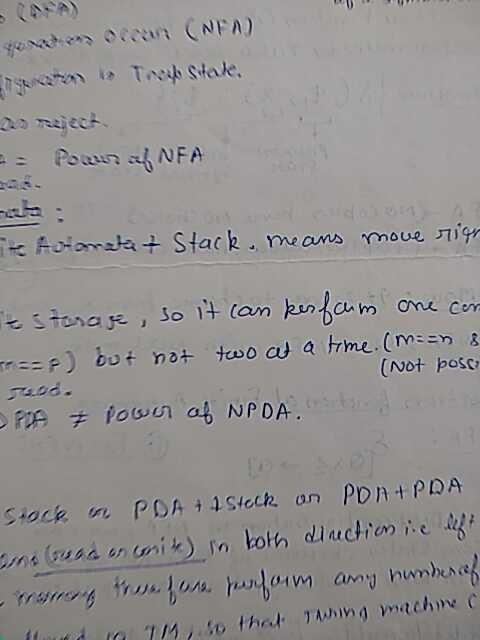 (DFA)
occur (NFA)
is Trap State.
reject.
= Power of NFA
read.
mata :
ite Automata + Stack. means move righ
ite storage, so it can perform one com
m==p) but not two at a time. (m==n &
read. (Not possi
PDA ≠ Power of NPDA.
Stack or PDA + 1 Stack or PDA + PDA
(read or write) in both direction i.e left
memory therefore perform any number of
in TM, so that Turing machine c